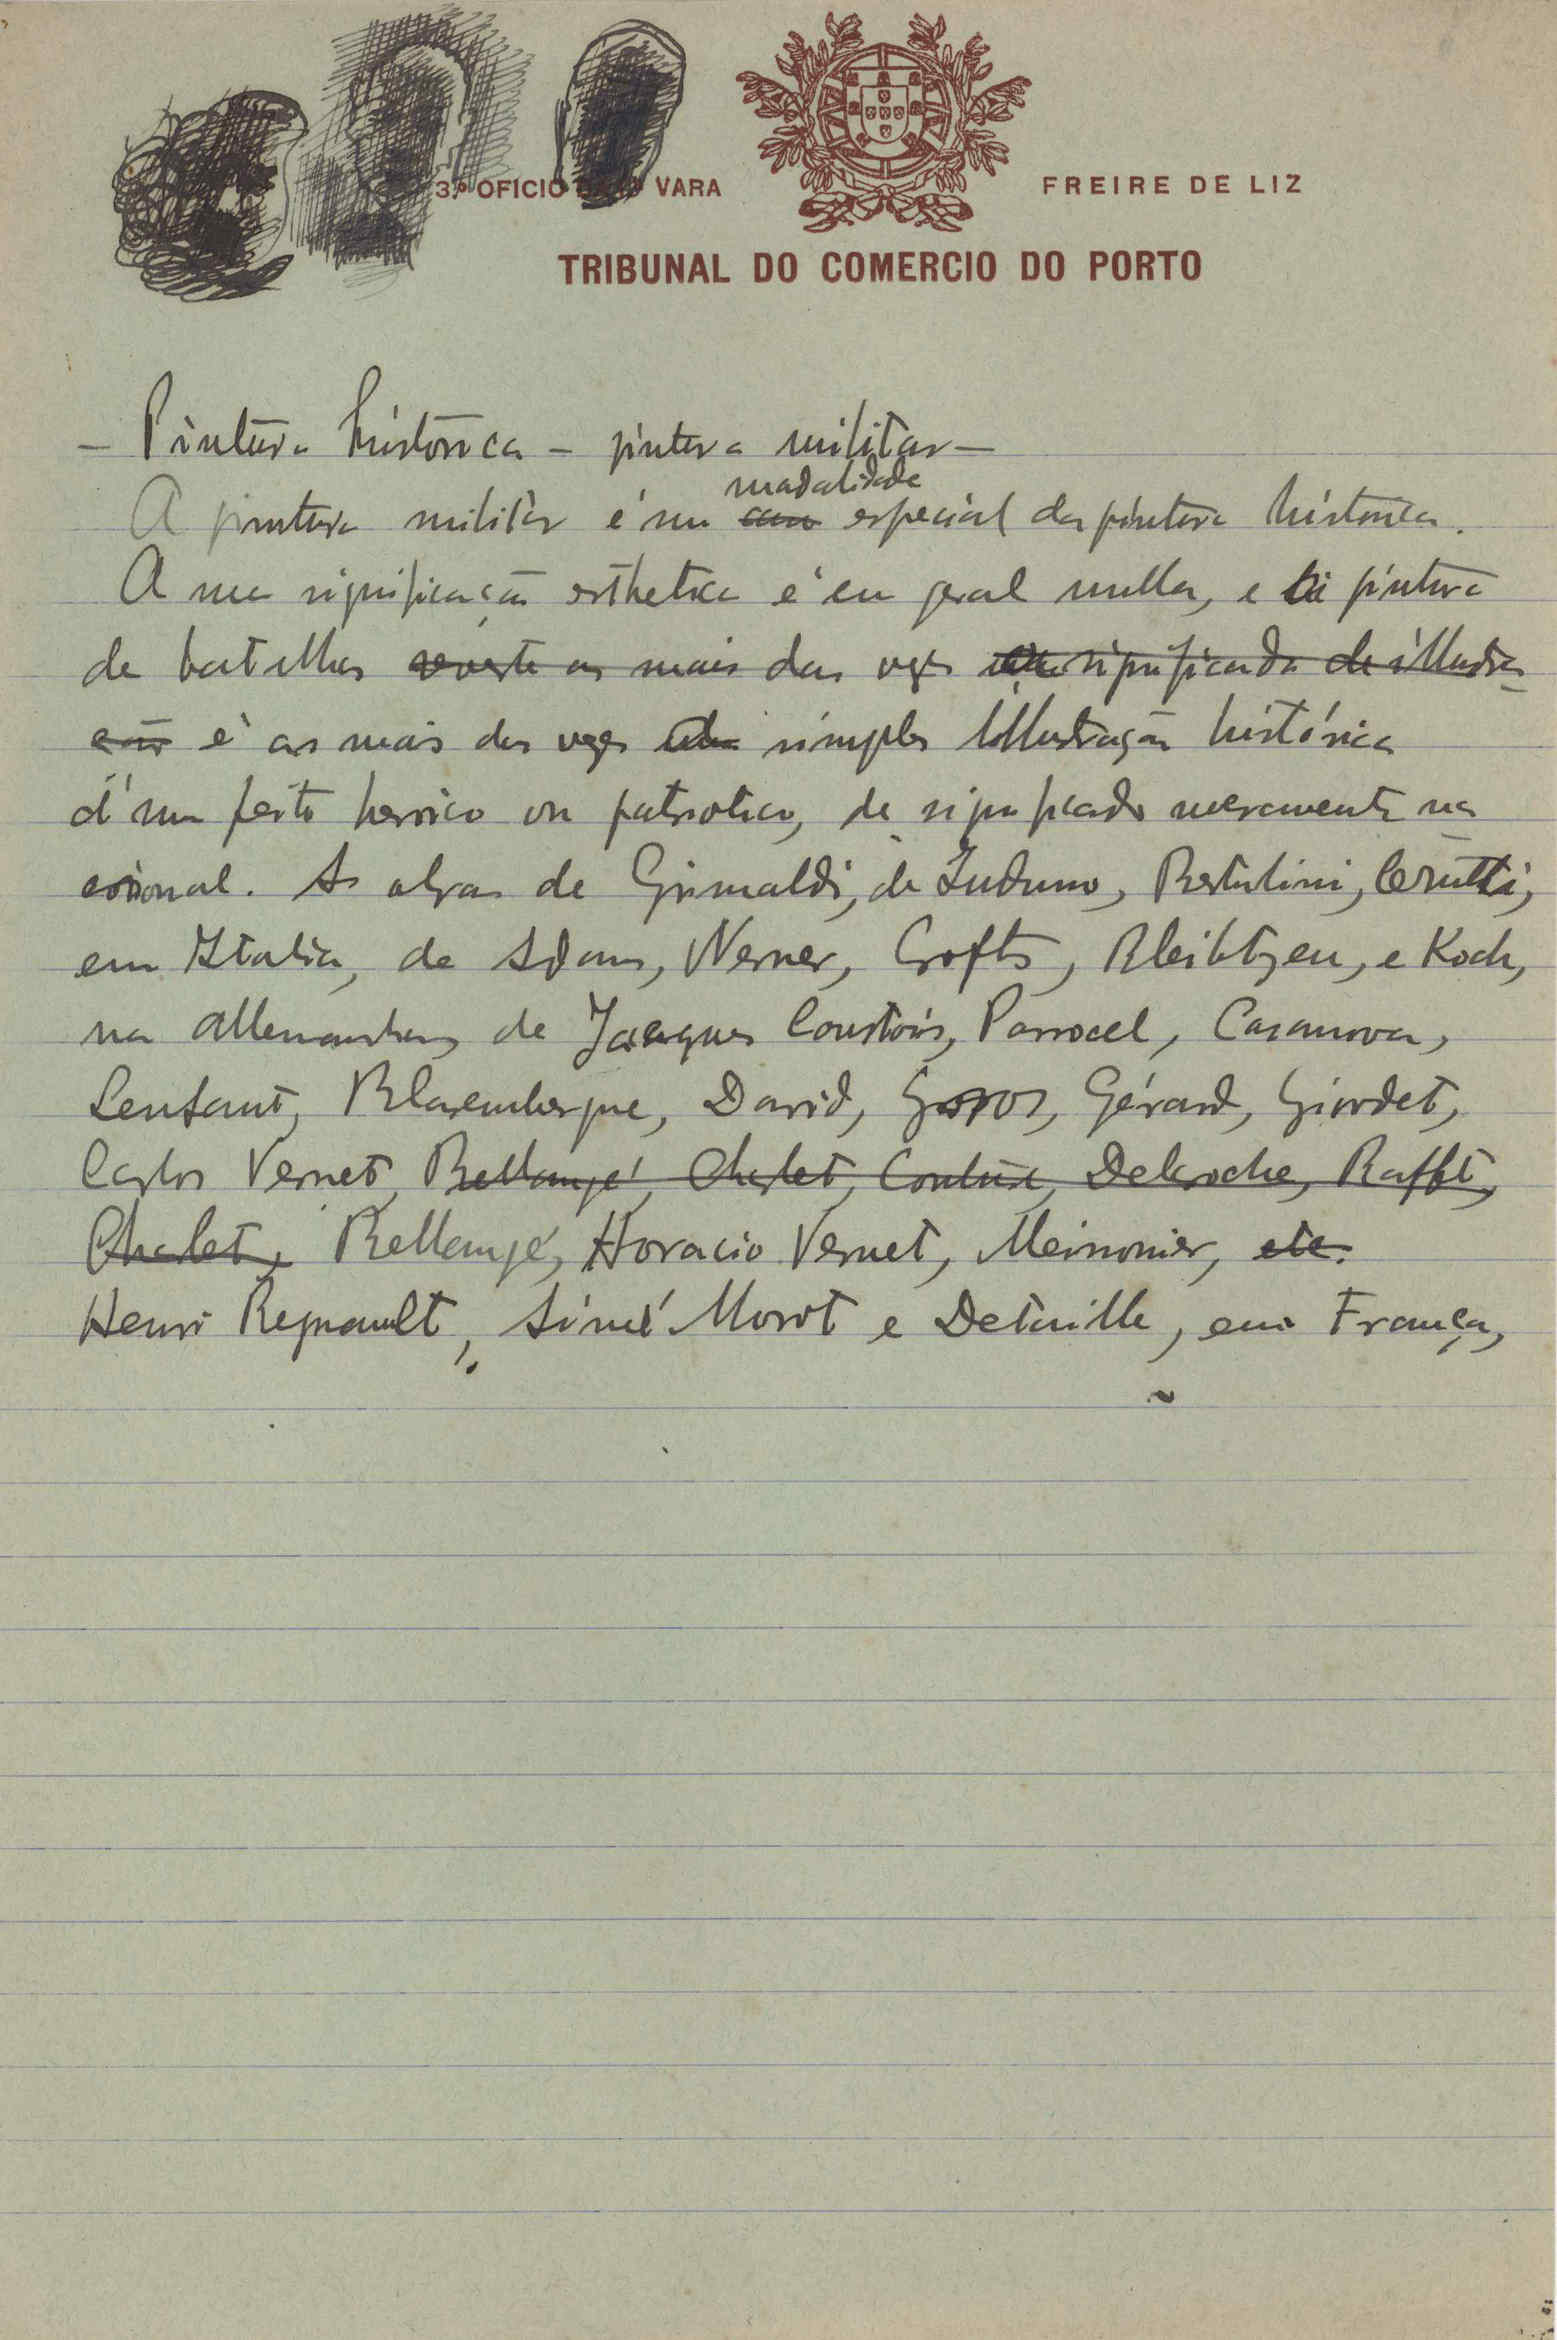 3.º OFICIO VARA
FREIRE DE LIZ
TRIBUNAL DO COMERCIO DO PORTO
— Pintura historica — pintura militar —
modalidade
A pintura militar é um caso especial da pintura historica.
A sua significação esthetica é em geral nulla, e a pintura
de batalhas reveste as mais das vezes significado de illustra-
ção é as mais das vezes simples illustração histórica
d'um feito heroico ou patriotico, de significado meramente na-
cional. As obras de Grimaldi, de Induno, Bertolini, Cerutti,
em Italia, de Adam, Werner, Crofts, Bleibtzeu, e Koch,
na Allemanha, de Jacques Courtois, Parrocel, Casanova,
Lenfant, Blaremberghe, David, Gros, Gérard, Girodet,
Carlos Vernet, Bellangé, Charlet, Couture, Delaroche, Raffet,
Charlet, Bellangé, Horacio Vernet, Meissonier, etc.
Henri Regnault, Aimé Morot e Detaille, em França,